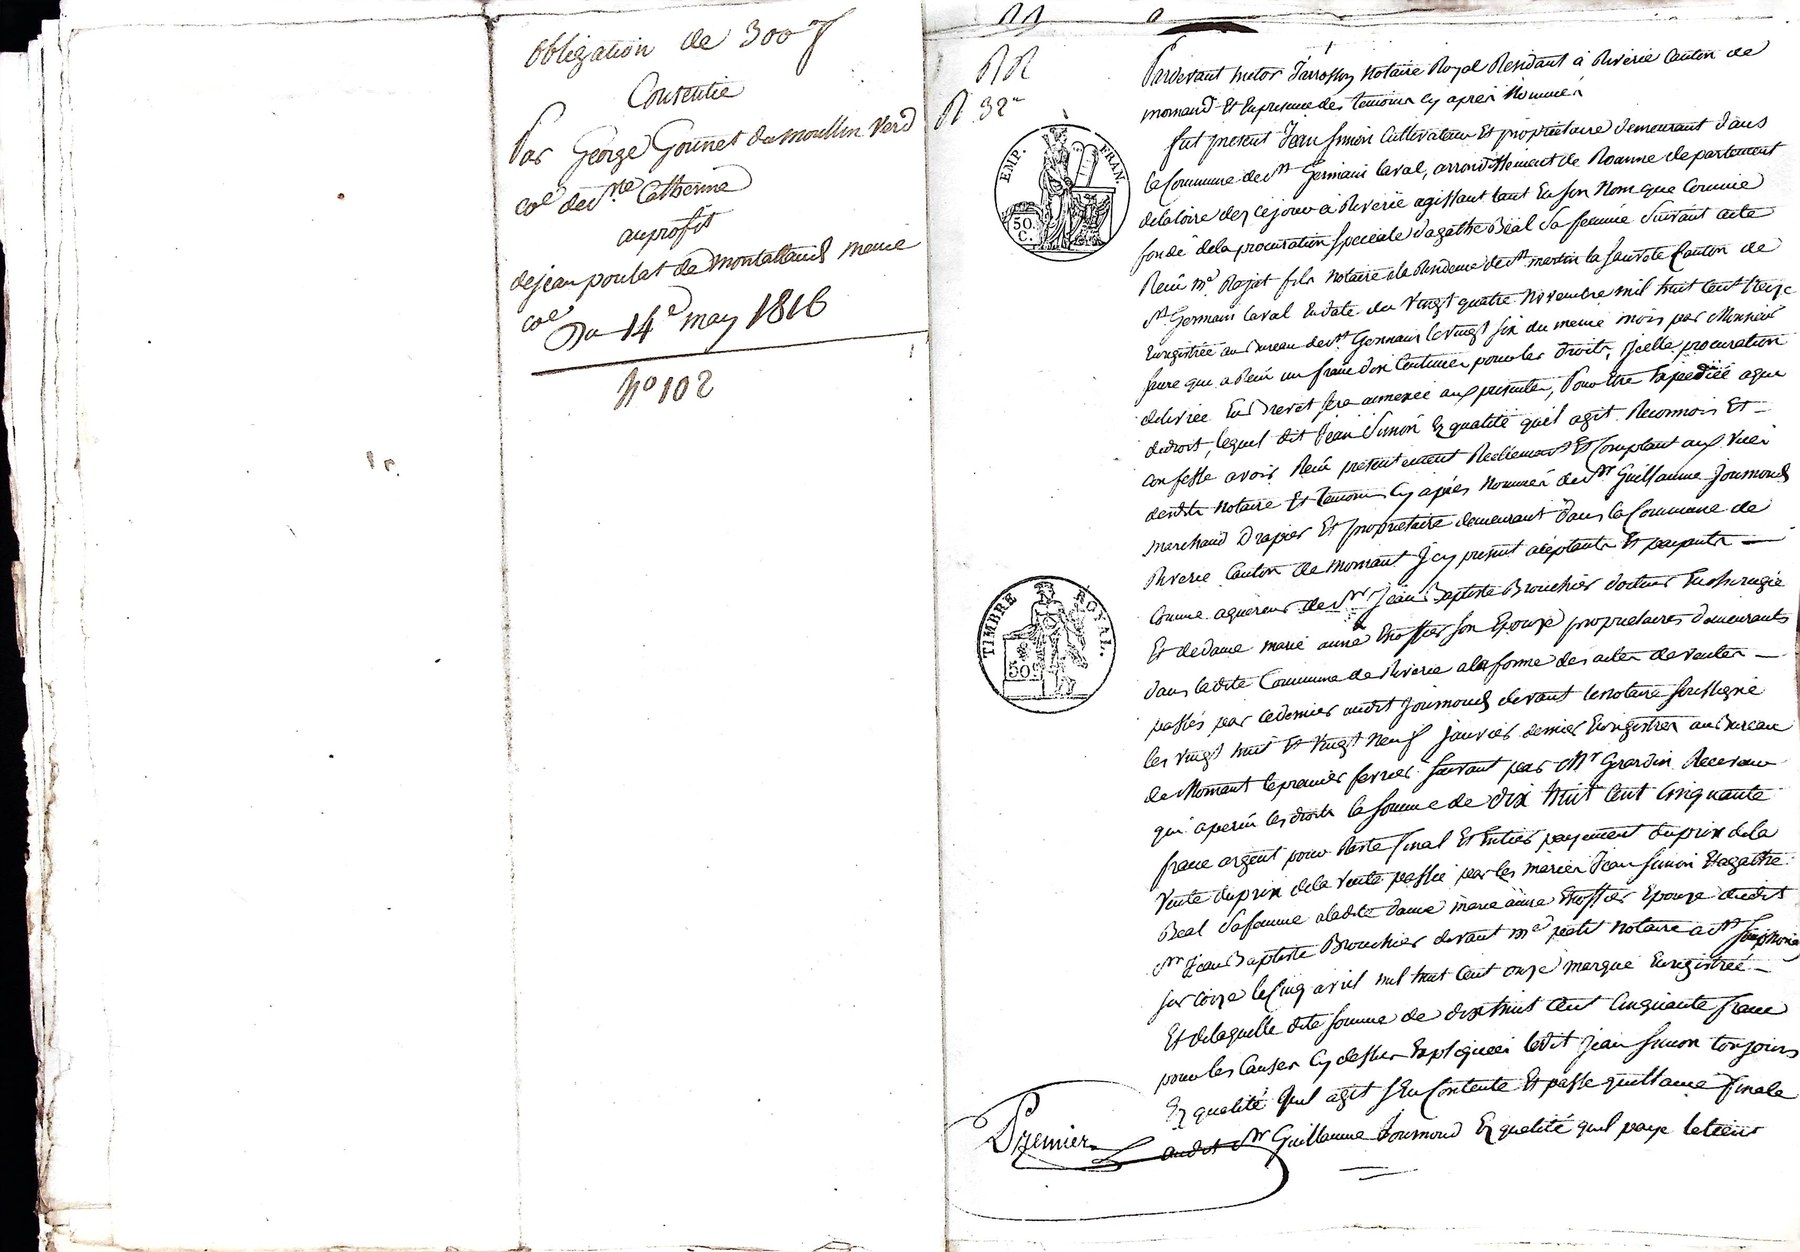 obligation de 300 f
Consentie
Par George Gounet du moullin Verd
coe. de Ste. Catherine
au profit
de jean poulat de montalland meme
coe.
Du 14e may 1816
No 102
R 32
EMP. FRAN.
50. C.
TIMBRE ROYAL.
50c
Pardevant hector Notaire Royal Residant à Riverie Canton de
mornand Et En presence des temoins cy apres Nommés
fut present Jean Simon Cultivateur Et proprietaire demeurant dans
la Commune de St. Germain Laval, arrondissement de Roanne departement
de la loire de ce jour a Riverie agissant tant En son Nom que Comme
fondé de la procuration speciale d'agathe Béal Sa femme Suivant acte
Reçu me. Rojat fils Notaire a la Residence de St. martin la Sauveté Canton de
St. Germain Laval En date du Vingt quatre Novembre mil huit Cent treize
Enregistrée au Bureau de St. Germain le vingt six du meme mois par Monsieur
faure qui a Reçu un franc dix Centimes pour les droits, jcelle procuration
delivrée En Brevet sera annexée aux presentes, Pour Etre Expediée a que
de droit, lequel dit Jean Simon En qualité qu'il agit Reconnois Et
confesse avoir Reçu presentement Reellement Et Comptant aux Vue
desdits Notaire Et temoins Cy après Nommés de Sr. Guillaume Joumond
marchand Drapier Et proprietaire demeurant dans la Commune de
Riverie Canton de mornant Jcy present aceptant Et payant
Comme aquereur de Sr. Jean Baptiste Brouchier docteur En chirurgie
Et de dame marie anne son Epouze proprietaires demeurants
dans ladite Commune de Riverie a la forme des actes de ventes
passés par ce dernier audit Joumond devant le notaire soussigné
les vingt huit Et Vingt Neuf Janvier dernier Enregistrés au Bureau
de Mornant le premier fevrier suivant par Mr. Girardin Receveur
qui a perçu les droits la somme de dix huit Cent Cinquante
franc argent pour Reste final Et Entier payement du prix de la
Vente du prix de la Vente passée par les mariés Jean Simon Et agathe
Béal Sa femme a ladite dame marie anne Epouze dudit
Sr. Jean Baptiste Brouchier devant me. petit Notaire a St. Simphorien
sur Coize le Cinq avril mil huit Cent onze marqué Enregistrée
Et de laquelle dite somme de dix huit Cent Cinquante franc
pour les Causes Cy dessus Expliquées ledit Jean Simon toujours
En qualité qu'il agit s'En Contente Et passe quittance finale
audit Sr. Guillaume Joumond En qualité qu'il paye le tient
Premier